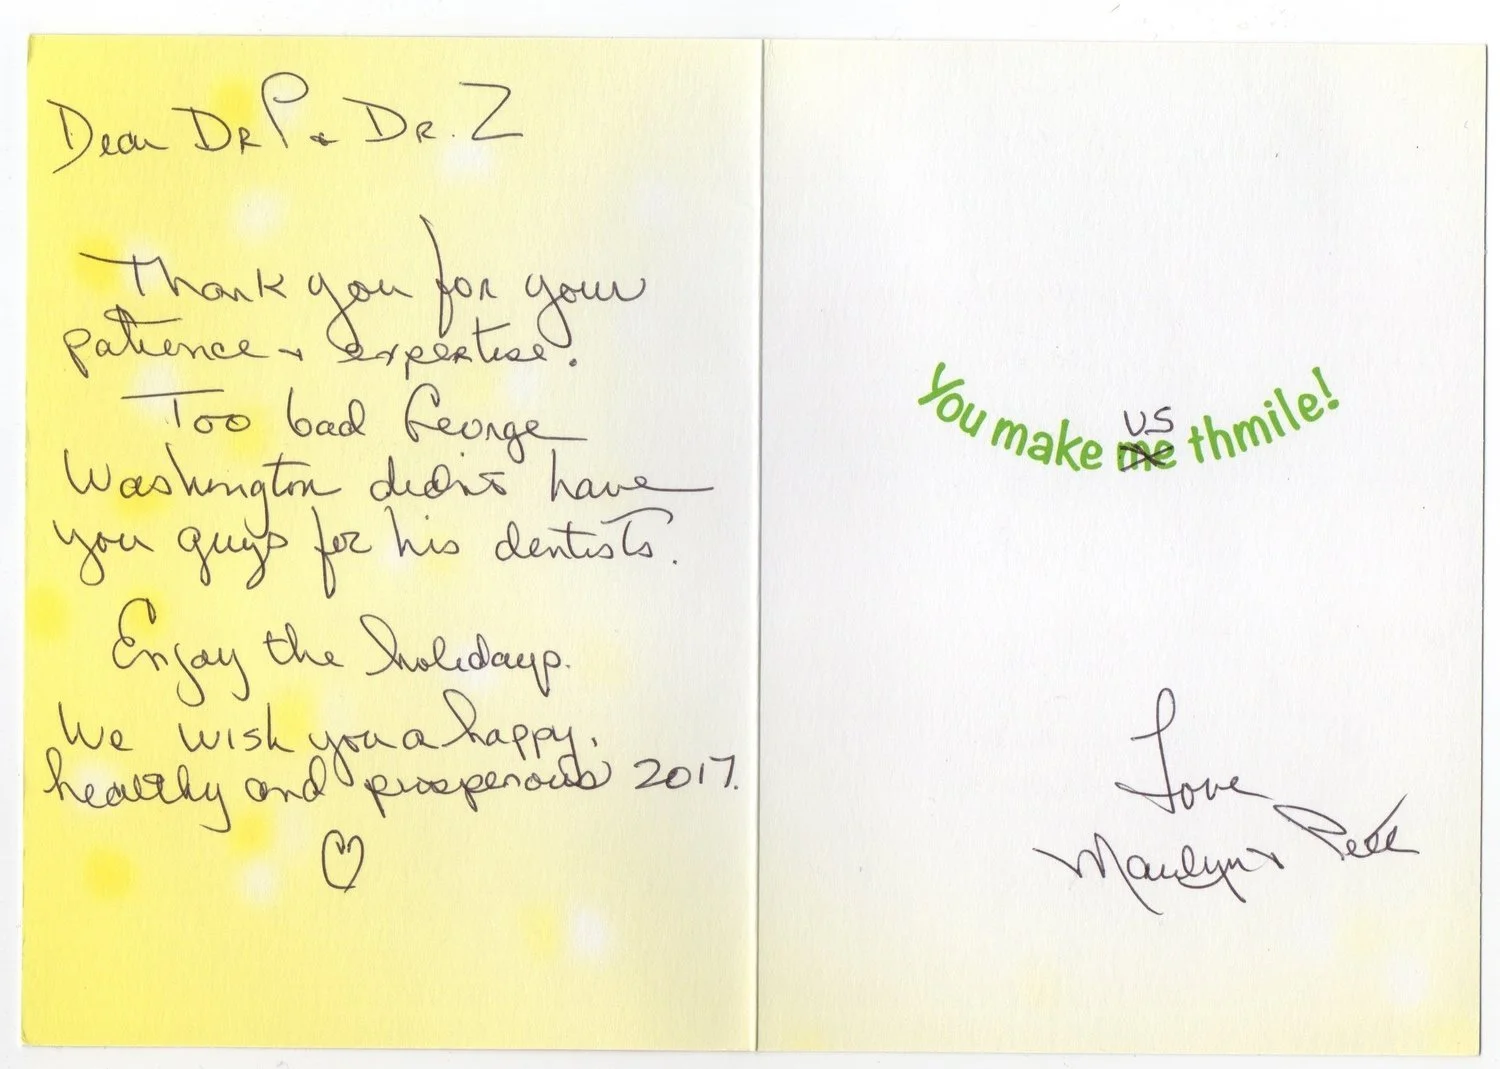 Dear Dr P + Dr. Z
Thank you for your
patience + expertise.
Too bad George
Washington didn't have
you guys for his dentists.
Enjoy the holidays.
We wish you a happy,
healthy and prosperous 2017.
♡
us
You make me thmile!
Love
Marilyn + Pete